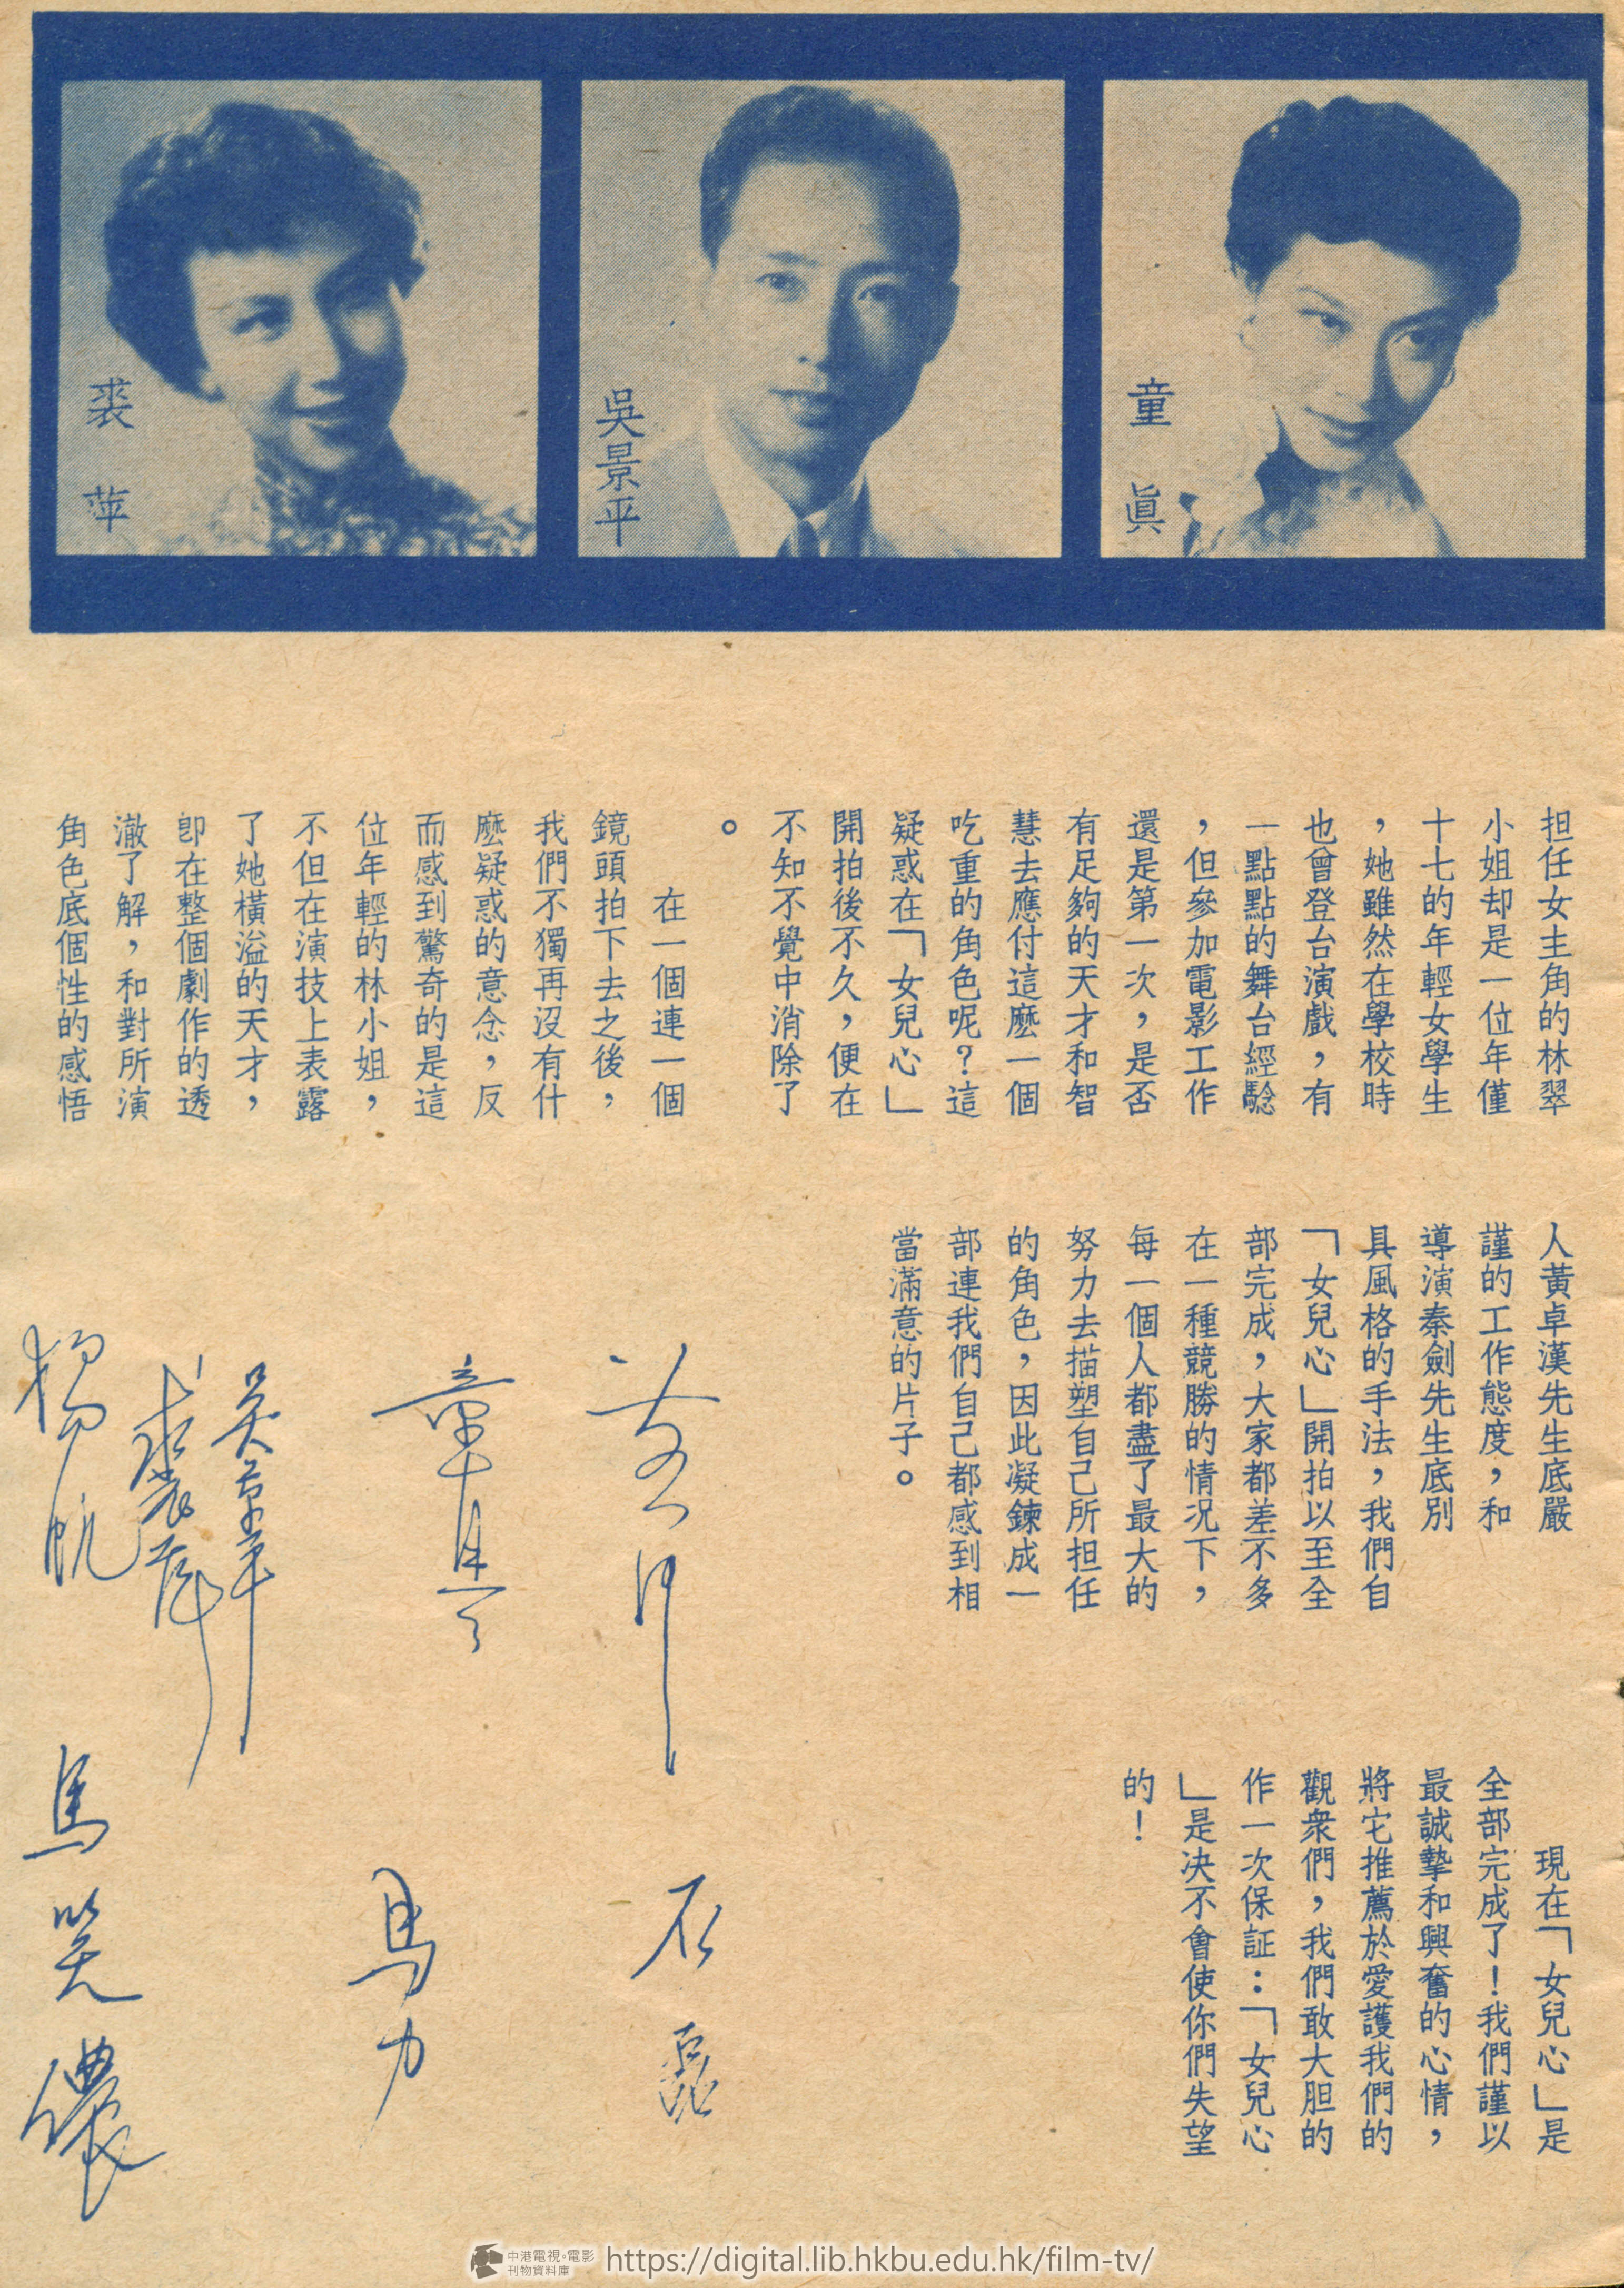 童眞
吳景平
裘萍
担任女主角的林翠
小姐却是一位年僅
十七的年輕女學生
，她雖然在學校時
也曾登台演戲，有
一點點的舞台經驗
，但參加電影工作
還是第一次，是否
有足夠的天才和智
慧去應付這麽一個
吃重的角色呢？這
疑惑在「女兒心」
開拍後不久，便在
不知不覺中消除了
。
在一個連一個
鏡頭拍下去之後，
我們不獨再沒有什
麽疑惑的意念，反
而感到驚奇的是這
位年輕的林小姐，
不但在演技上表露
了她橫溢的天才，
卽在整個劇作的透
澈了解，和對所演
角色底個性的感悟
人黃卓漢先生底嚴
謹的工作態度，和
導演秦劍先生底別
具風格的手法，我們自
「女兒心」開拍以至全
部完成，大家都差不多
在一種競勝的情况下，
每一個人都盡了最大的
努力去描塑自己所担任
的角色，因此凝鍊成一
部連我們自己都感到相
當滿意的片子。
黃河
童眞
吳景平
裘萍
楊帆
現在「女兒心」是
全部完成了！我們謹以
最誠摯和興奮的心情，
將它推薦於愛護我們的
觀衆們，我們敢大胆的
作一次保証：「女兒心
」是决不會使你們失望
的！
石磊
馬力
馬笑儂
中港電視·電影
刊物資料庫
https://digital.lib.hkbu.edu.hk/film-tv/